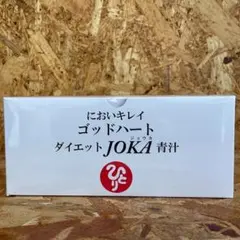 においキレイ
ゴッドハート
ジョウカ
ダイエット JOKA 青汁
ひとり